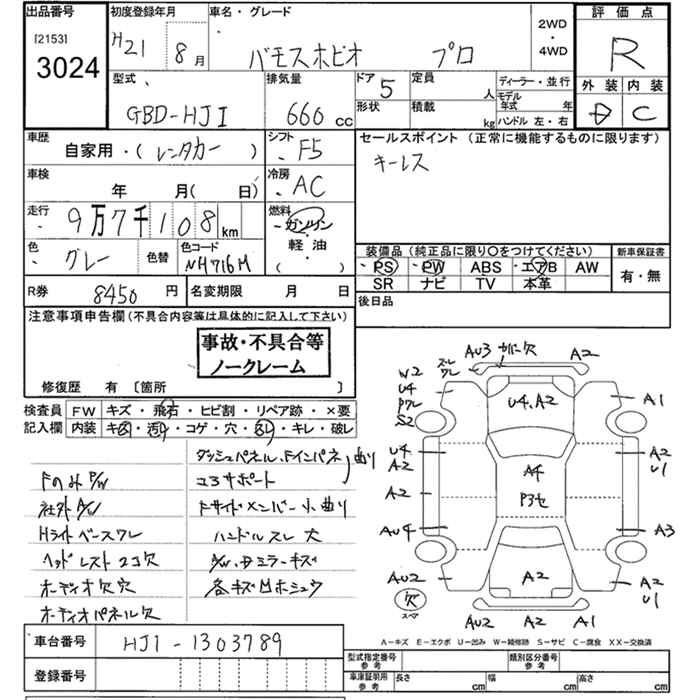 出品番号
[2153]
3024
初度登録年月
H21 8月
車名・グレード
バモスホビオ プロ
2WD
・
4WD
評価点
R
外装 内装
D C
型式
GBD-HJ1
排気量
660 cc
ドア
5
形状
定員
人
積載
kg
ディーラー・並行
モデル年式 年
ハンドル 左・右
車歴
自家用・(レンタカー)
シフト
F5
セールスポイント (正常に機能するものに限ります)
キーレス
車検
年 月(日)
冷房
AC
走行
9万7千108km
燃料
ガソリン
・
軽油
( )
色
グレー
色替
色コード
NH716M
装備品 (純正品に限り○をつけてください)
PS PW ABS エアB AW
SR ナビ TV 本革
新車保証書
有・無
R券 8450円
名変期限 月 日
後日品
注意事項申告欄(不具合内容等は具体的に記入して下さい)
事故・不具合等
ノークレーム
修復歴 有〔箇所 〕
検査員記入欄
FW キズ・飛石・ヒビ割・リペア跡・×要
内装 キズ・汚れ・コゲ・穴・スレ・キレ・破レ
ダッシュパネル、Fインパネ曲り
Fのみ P/W
コアサポート
社外A/W
Fサイドメンバー小曲り
Hライトベースワレ
ハンドルスレ大
ヘッドレスト2コ欠
A/W、Dミラーキズ
オーディオ欠穴
各キズ凹ホシュウ
オーディオパネル欠
AU3 カバー欠 A2
スレ
ワレ
W2
U4
Pワレ
S2
U4、A2
A1
U4
A2
A4
P3セ
A2
U1
A2
AU4
A3
AU2
A2
A2
U1
欠
スペア
AU2 A2 A1
A-キズ E-エクボ U-凹み W-補修跡 S-サビ C-腐食 XX-交換済
車台番号 HJ1-1303789
登録番号
型式指定番号
参考
類別区分番号
参考
車庫証明用
参考
長さ cm 幅 cm 高さ cm